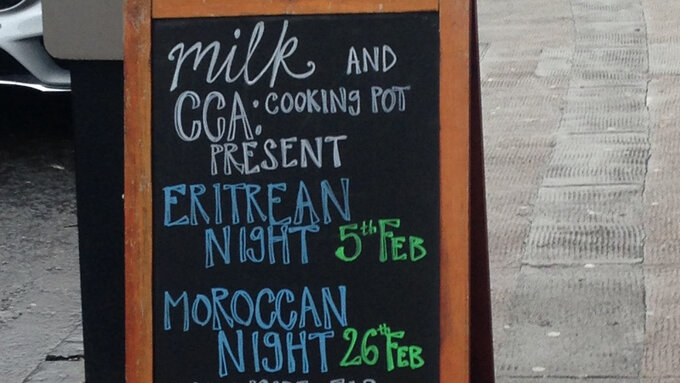 milk AND
CCA: COOKING POT
PRESENT
ERITREAN
NIGHT 5th FEB
MOROCCAN
NIGHT 26th FEB